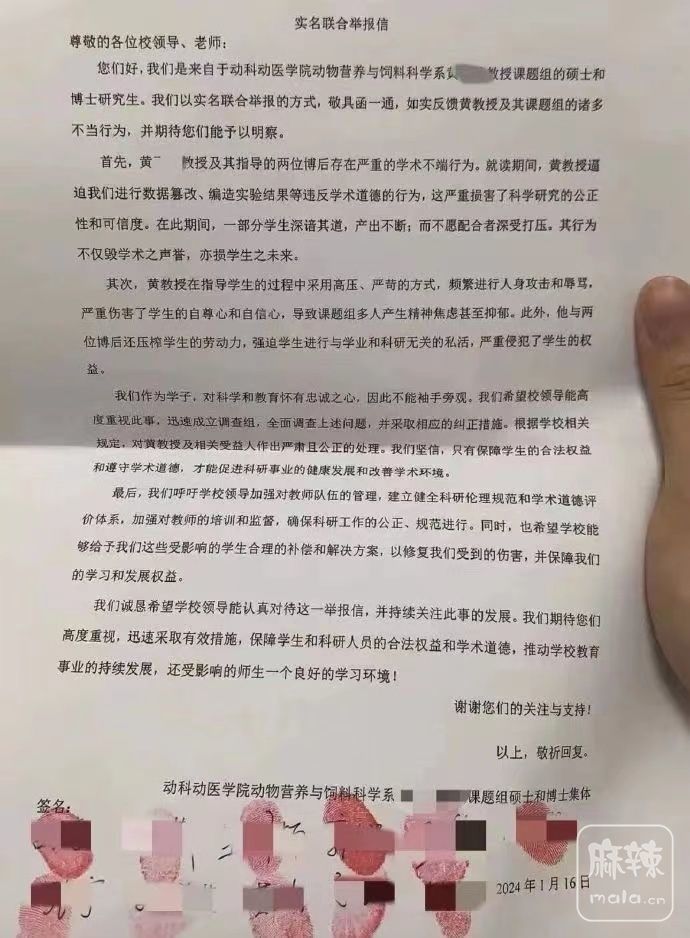 实名联合举报信
尊敬的各位校领导、老师：
您们好，我们是来自于动科动医学院动物营养与饲料科学系黄教授课题组的硕士和
博士研究生。我们以实名联合举报的方式，敬具函一通，如实反馈黄教授及其课题组的诸多
不当行为，并期待您们能予以明察。
首先，黄教授及其指导的两位博后存在严重的学术不端行为。就读期间，黄教授逼
迫我们进行数据篡改、编造实验结果等违反学术道德的行为，这严重损害了科学研究的公正
性和可信度。在此期间，一部分学生深谙其道，产出不断；而不愿配合者深受打压。其行为
不仅毁学术之声誉，亦损学生之未来。
其次，黄教授在指导学生的过程中采用高压、严苛的方式，频繁进行人身攻击和辱骂，
严重伤害了学生的自尊心和自信心，导致课题组多人产生精神焦虑甚至抑郁。此外，他与两
位博后还压榨学生的劳动力，强迫学生进行与学业和科研无关的私活，严重侵犯了学生的权
益。
我们作为学子，对科学和教育怀有忠诚之心，因此不能袖手旁观。我们希望校领导能高
度重视此事，迅速成立调查组，全面调查上述问题，并采取相应的纠正措施。根据学校相关
规定，对黄教授及相关受益人作出严肃且公正的处理。我们坚信，只有保障学生的合法权益
和遵守学术道德，才能促进科研事业的健康发展和改善学术环境。
最后，我们呼吁学校领导加强对教师队伍的管理，建立健全科研伦理规范和学术道德评
价体系，加强对教师的培训和监督，确保科研工作的公正、规范进行。同时，也希望学校能
够给予我们这些受影响的学生合理的补偿和解决方案，以修复我们受到的伤害，并保障我们
的学习和发展权益。
我们诚恳希望学校领导能认真对待这一举报信，并持续关注此事的发展。我们期待您们
高度重视，迅速采取有效措施，保障学生和科研人员的合法权益和学术道德，推动学校教育
事业的持续发展，还受影响的师生一个良好的学习环境！
谢谢您们的关注与支持！
以上，敬祈回复。
动科动医学院动物营养与饲料科学系课题组硕士和博士集体
签名：
2024年1月16日
麻辣
mala.cn